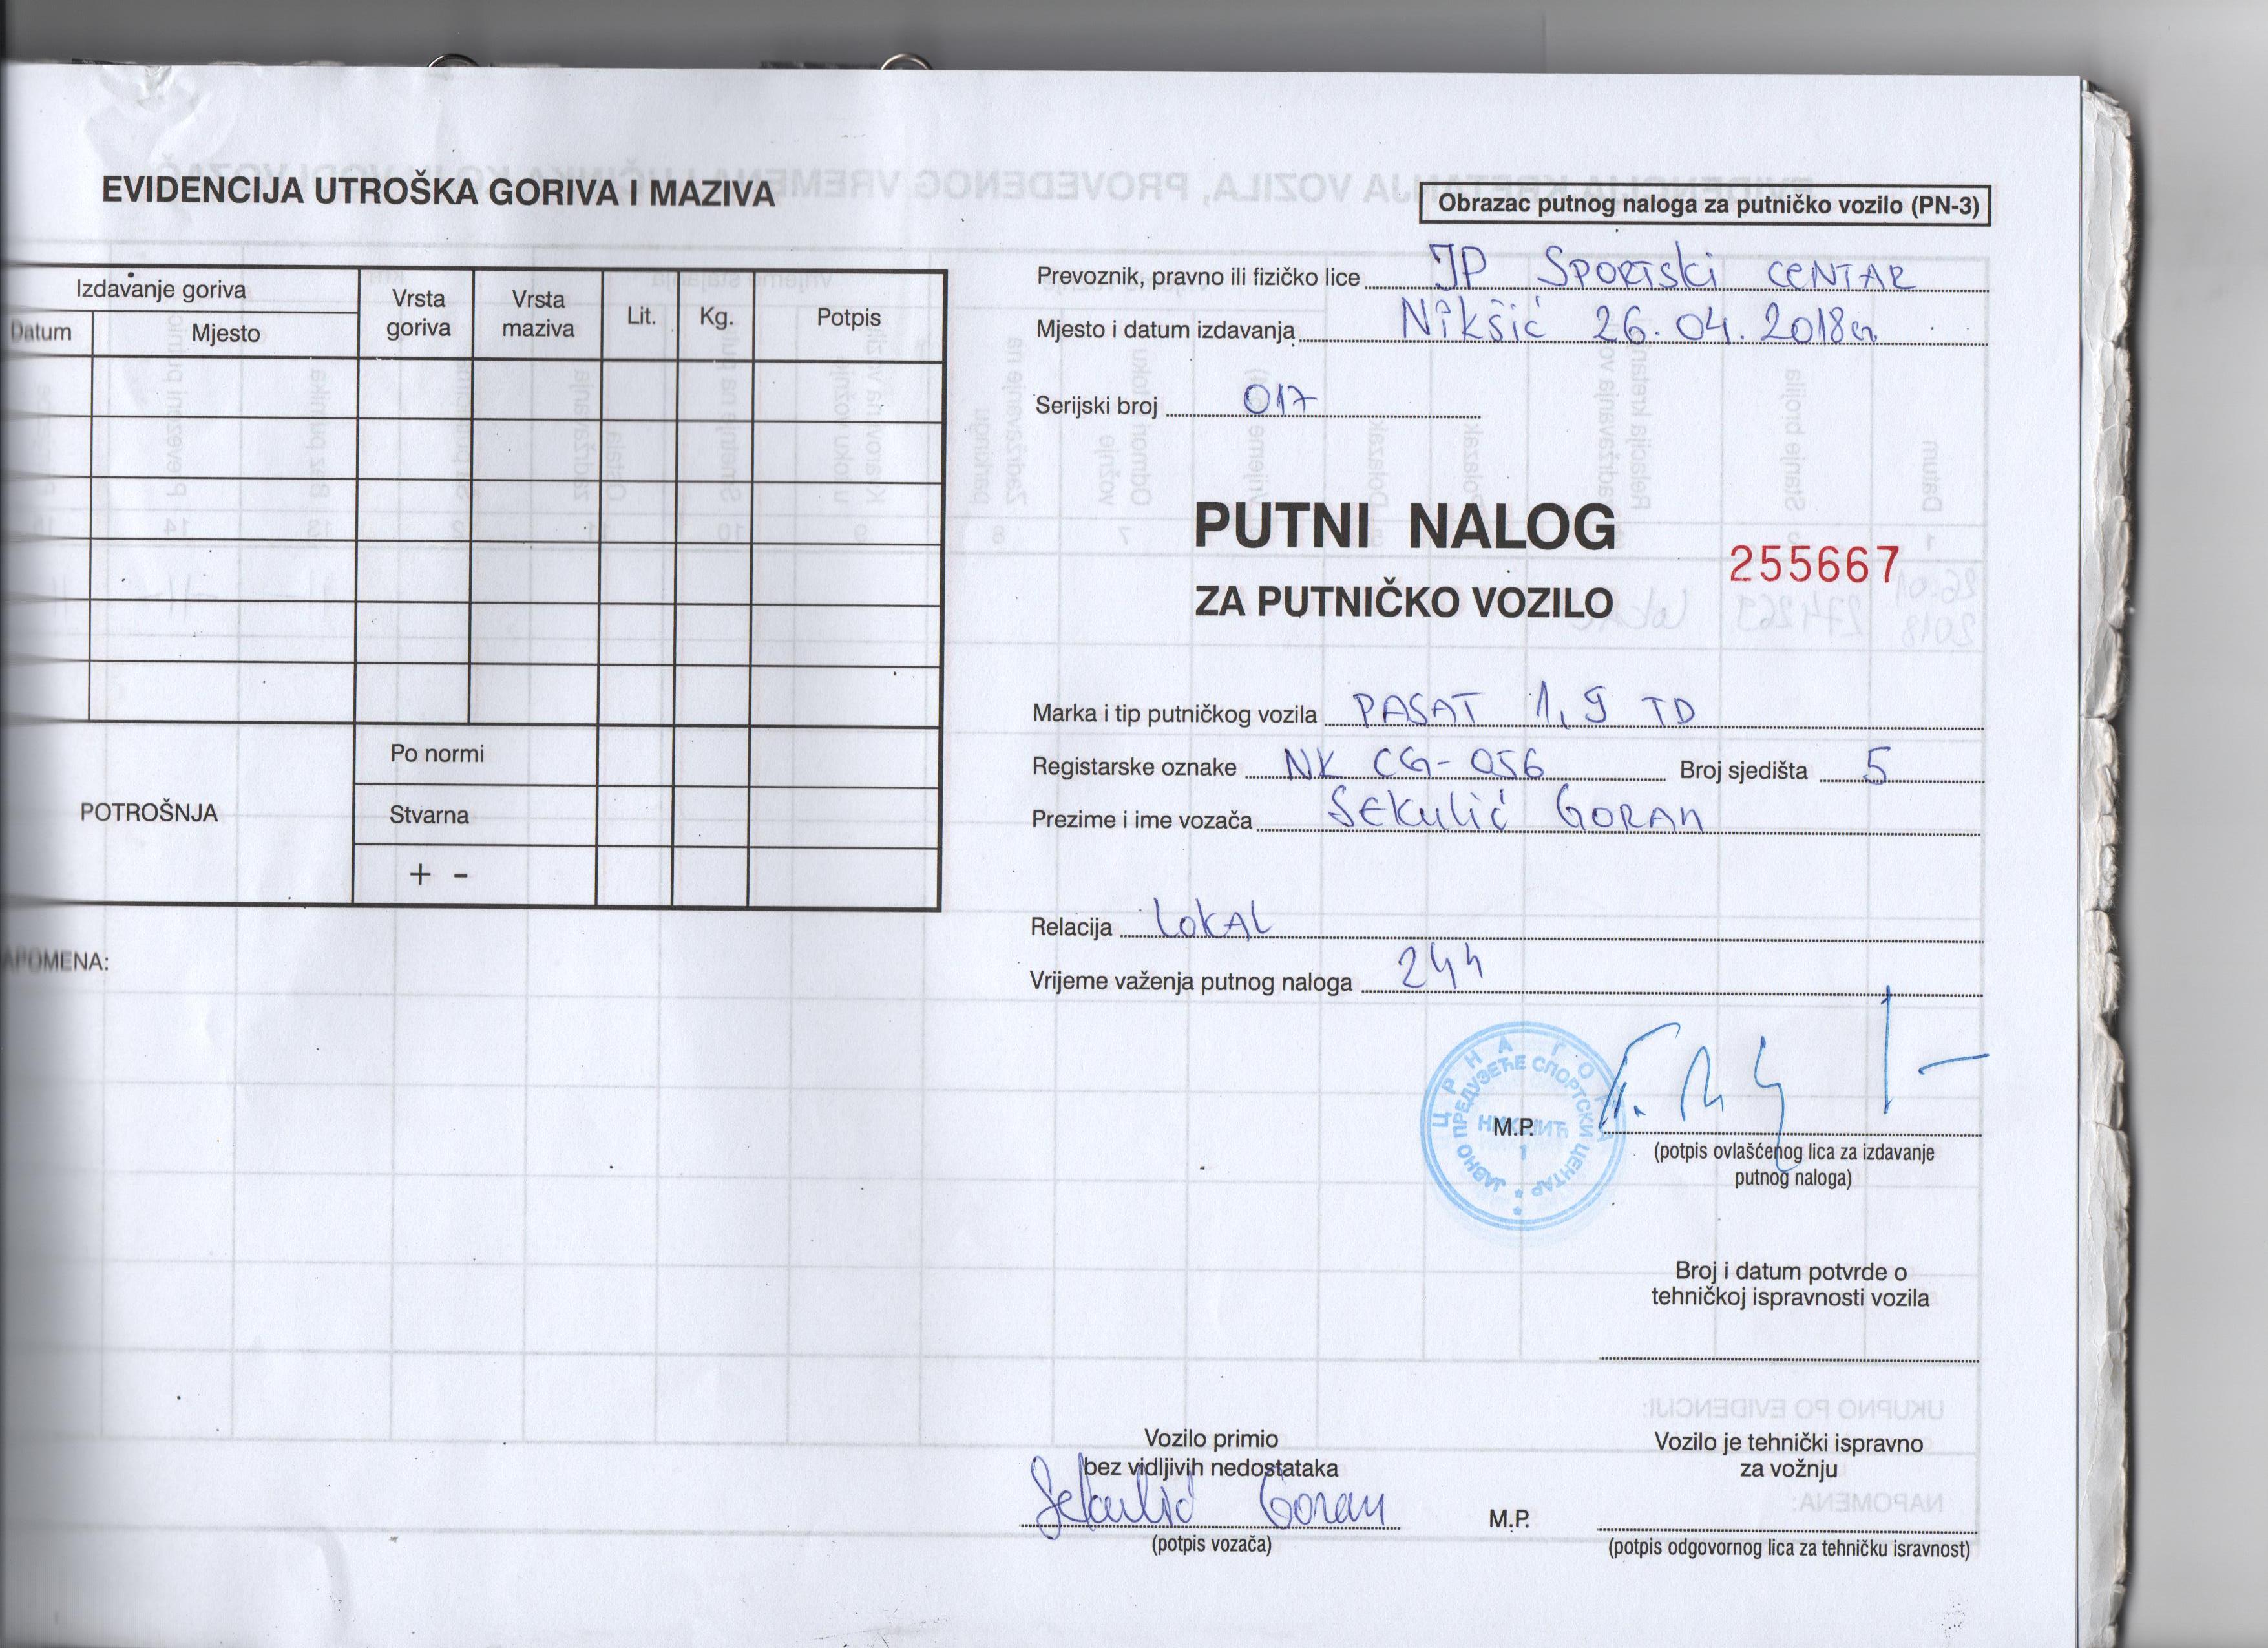 EVIDENCIJA UTROŠKA GORIVA I MAZIVA
Izdavanje goriva
Datum
Mjesto
Vrsta
goriva
Vrsta
maziva
Lit.
Kg.
Potpis
POTROŠNJA
Po normi
Stvarna
+ -
APOMENA:
Obrazac putnog naloga za putničko vozilo (PN-3)
Prevoznik, pravno ili fizičko lice JP Sportski CENTAR
Mjesto i datum izdavanja Nikšić 26.04.2018
Serijski broj 017
PUTNI NALOG
255667
ZA PUTNIČKO VOZILO
Marka i tip putničkog vozila PASAT 1,9 TD
Registarske oznake NK CG-056 Broj sjedišta 5
Prezime i ime vozača Sekulić Goran
Relacija lokal
Vrijeme važenja putnog naloga 24h
ЦРНА ГОРА
ЈАВНО ПРЕДУЗЕЋЕ СПОРТСКИ ЦЕНТАР
НИКШИЋ
1
M.P.
(potpis ovlašćenog lica za izdavanje
putnog naloga)
Broj i datum potvrde o
tehničkoj ispravnosti vozila
Vozilo primio
bez vidljivih nedostataka
Sekulić Goran
(potpis vozača)
Vozilo je tehnički ispravno
za vožnju
M.P.
(potpis odgovornog lica za tehničku isravnost)